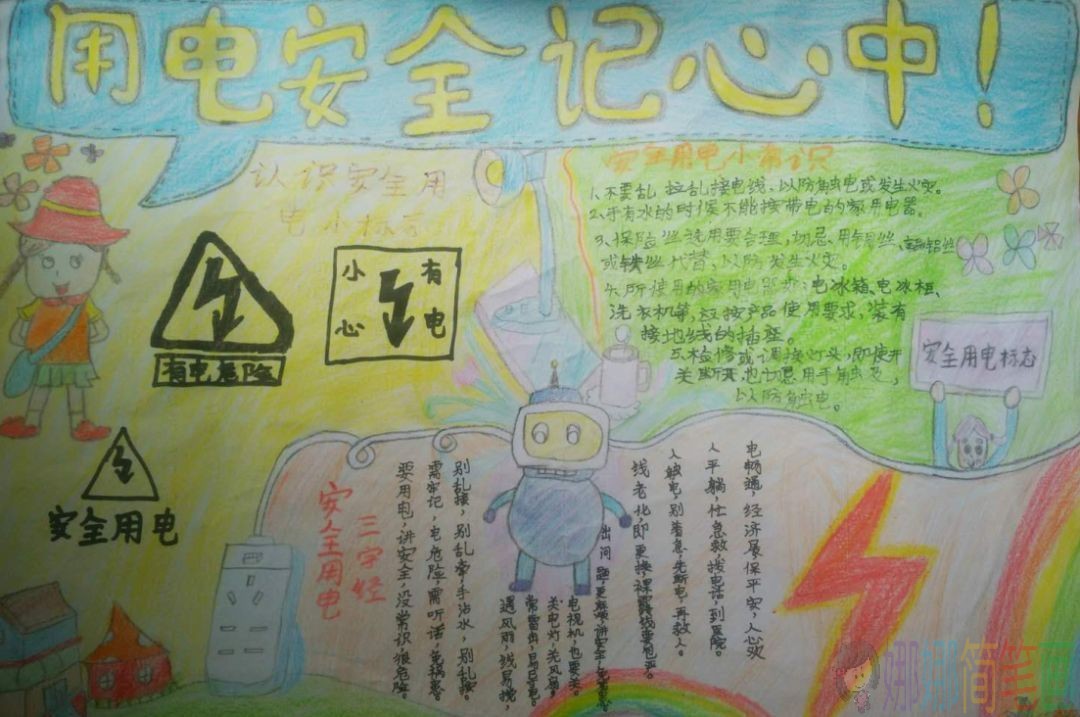 用电安全记心中！
认识安全用
电小标志
有电危险
小心
有电
安全用电
安全用电小常识
1.不要乱拉乱接电线、以防触电或发生火灾。
2.手有水的时候不能接带电的家用电器。
3.保险丝选用要合理,切忌用铜丝、铝丝
或铁丝代替、以防发生火灾。
4.所使用的家用电器如:电冰箱、电冰柜、
洗衣机等,应按产品使用要求,装有
接地线的插座。
5.检修或调换灯头,即使开
关断开,也切忌用手触及,
以防触电。
安全用电标志
安全用电
三字经
电畅通,经济展,保平安,人心欢
人平躺,忙急救,拨电话,到医院。
人触电,别着急,先断电,再救人。
线老化,即更换,裸露线,要包严。
出问题,更麻烦,讲安全,
电视机,也要关。
关电灯,关风扇,
常雷雨,易
遇风雨,线易扰,
别乱接,别乱牵,手沾水,别乱按。
需牢记,电危险,需听话,免祸患。
要用电,讲安全,没常识,很危险。
娜娜简笔画